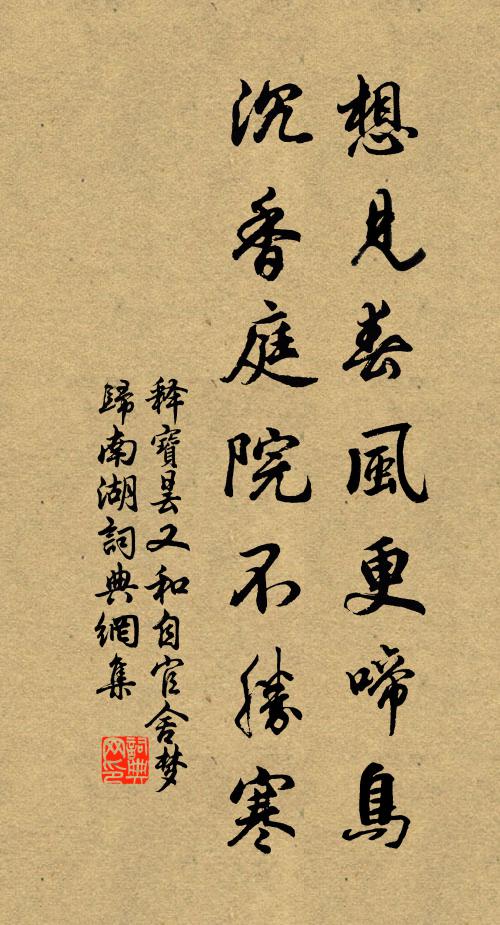 想見春風更啼鳥
沉香庭院不勝寒
释寶曇又和自官舍梦
歸南湖詞典網集
詞典网印